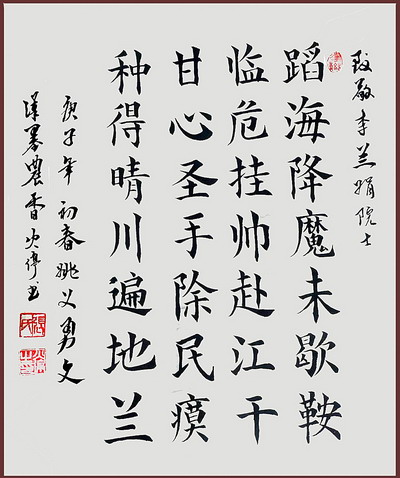 致敬李兰娟院士
蹈海降魔未歇鞍
临危挂帅赴江干
甘心圣手除民瘼
种得晴川遍地兰
庚子年初春姚义勇文
農香书